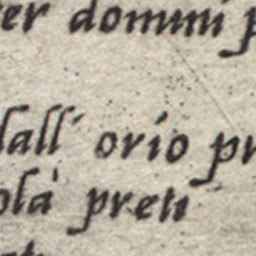 er domini p
dall' orio pr
olà preti